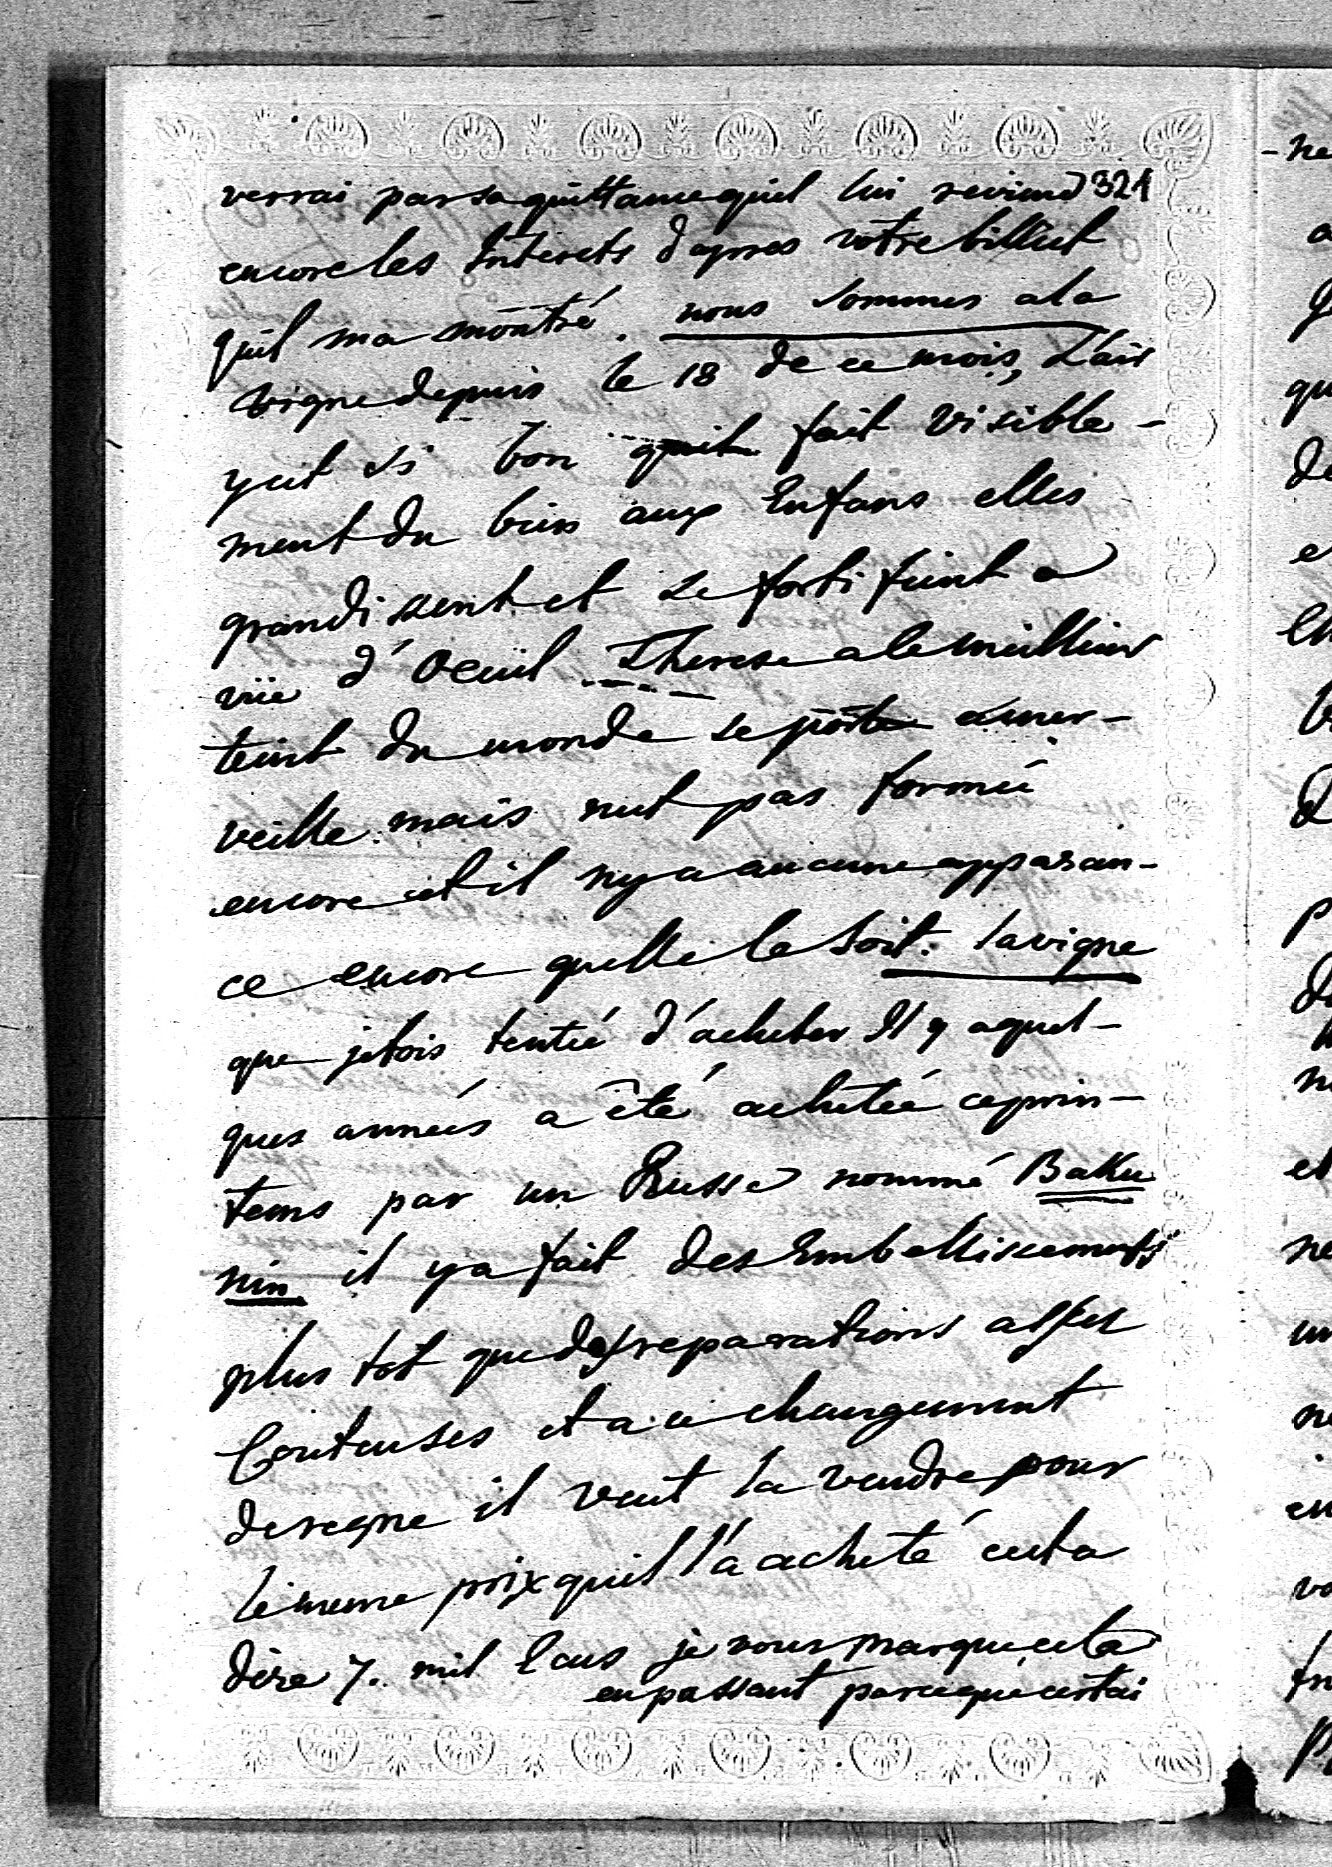 verrai par sa quittance quil lui revient 321
encore les Interets dapres votre billiet
quil ma montré. nous sommes a la
vigne depuis le 18 de ce mois, L'air
y ĕt si bon quil fait visible-
ment du bien aux Enfans elles
grandissent et se fortifient a
vüe d'Oeuil. Therese a le meillieur
teint du monde se porte amer-
veille mais nĕt pas formée
encore et il ny a aucune apparan-
ce encore quelle le soit. la vigne
que jetois tentée d'acheter Il y a quel-
ques années a été achetée ce prin-
tems par un Russe nommé Baku
nin il y a fait des Embellissements
plus tot que des reparations assez
Couteuses et a ce changement
de regne il veut la vendre pour
le meme prix quil l'a acheté cesta
dire 7. mil Ecus je vous marque cela
en passant parceque cetai